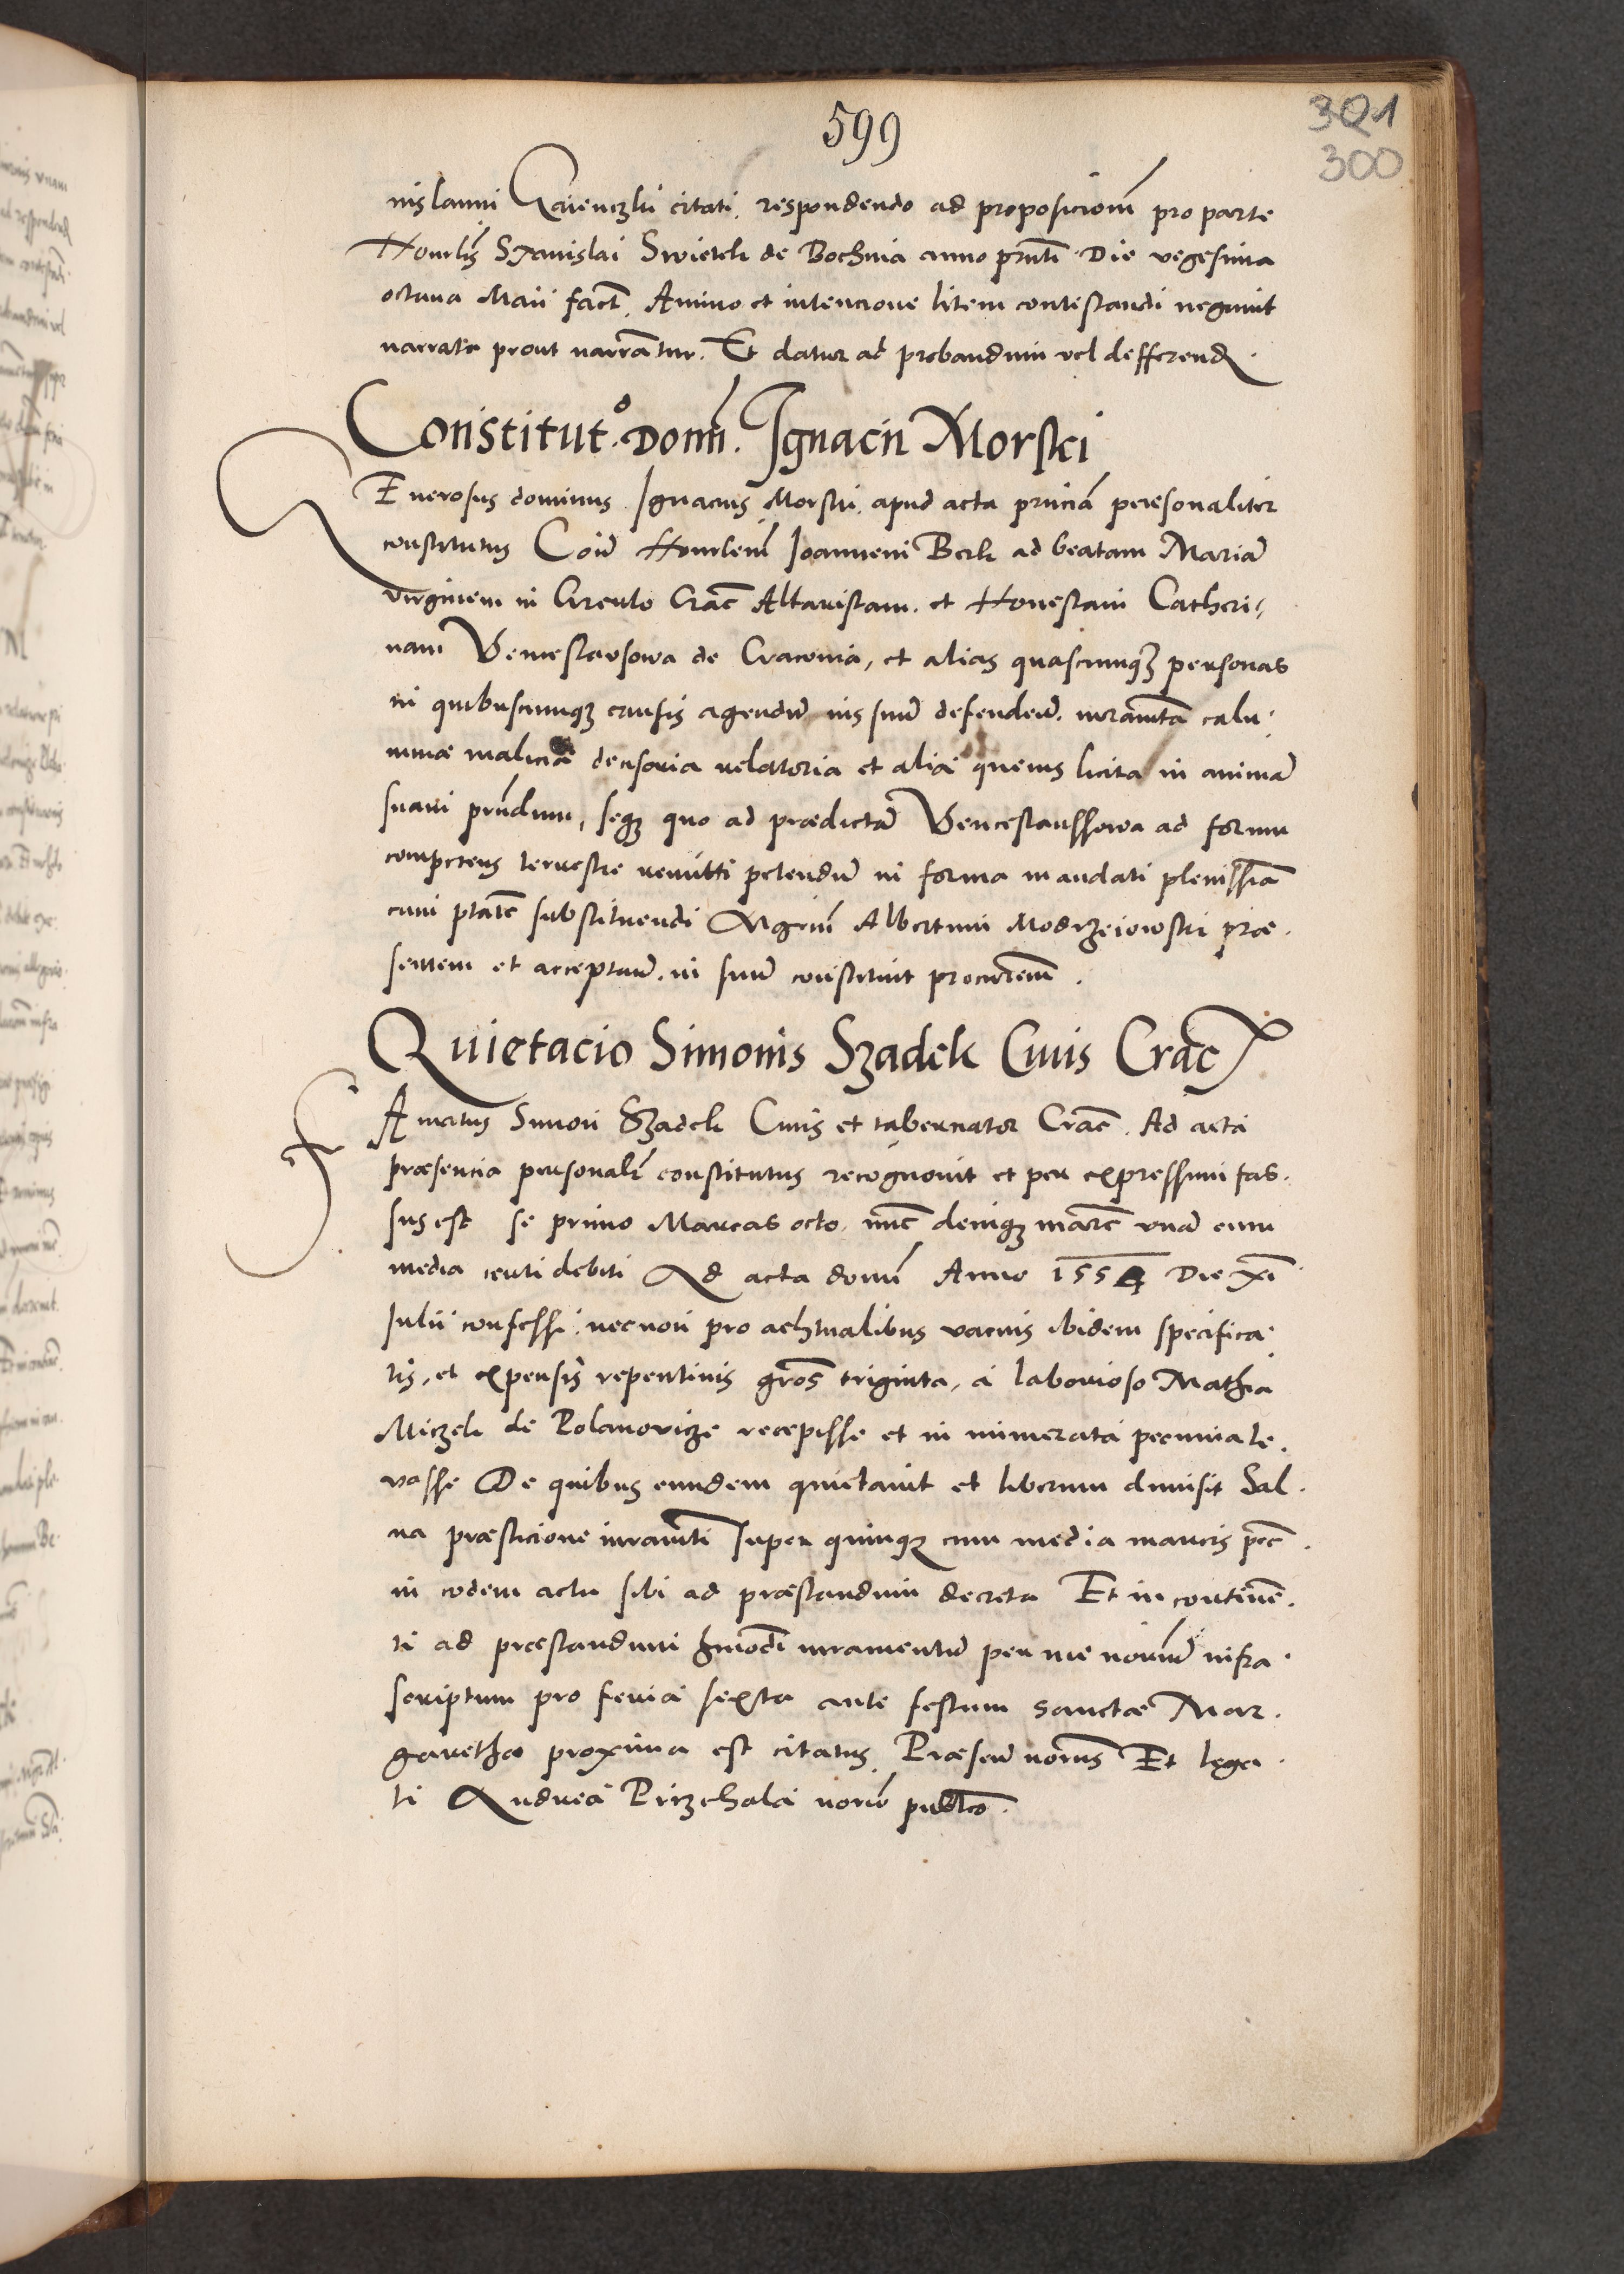 599
301
300
nislaum citati. respondendo ad proposicionem̄ pro parte
Honorlis Stanislai Swietek de Bochnia anno prnti Die vegesima
octaua Maii fact. Animo et intencione litem contestandi negauit
narrata prout narrantur. Et datur ad probandum vel defferend
Constituto. Dom̄. Ignacii Morski
Generosus dominus Ignacius Morski. apud acta prnciā personaliter
constitutus Contra Honorlem̄ Joannem Berk ad beatam Mariā
virginem in Circulo Crac̄ Altaristam. et Honestam Catheri
nam Venceslausowa de Cracouia, et alias quascunq3 personas
in quibuscunq3 causis agendū ius suū defendendū. iuramta calu:
niæ maliciæ decisoria relatoria et alia quæuis licita in animā
suam prndum, seq3 quo ad prædictā Venceslaussowa ad forum
competens terrestre remitti petendū in forma mandati plenissīa
cum ptāte substituendi Mgrum̄ Albertum Modrzeiowski præ.
sentem et acceptantē. in suū constituit procurem̄.
Quietacio Simonis Szadek Ciuis Crac
Famatus Simon Szadek Ciuis et tabernator Crac̄. Ad acta
præsencia personalr̄ constitutus recognouit et per expressum fas.
sus est se primo Marcas octo. nunc deniq3 marc̄ vnā cum
media certi debiti Ad acta domī Anno 1554 Die xi
Julii confessi. necnon pro actualibus vacuis ibidem specifica.
tis, et expensis repentinis gros̄ triginta, a laborioso Mathia
Miczek de Polanovicze recepisse et in numerata pecunia le.
vasse De quibus eundem quietauit et liberum dimisit Sal.
ua præsticione iuramti super quinq3 cum media marcis pec̄.
in eodem actu sibi ad præstandum decreta Et in continen.
ti ad præstandum hmōdi iuramentū per me noriū infra.
scriptum pro feria sexta ante festum sanctæ Mar.
garethæ proxima est citatus. Præsen̄ noriis Et lega.
ti Andrea Przechala norio publco.